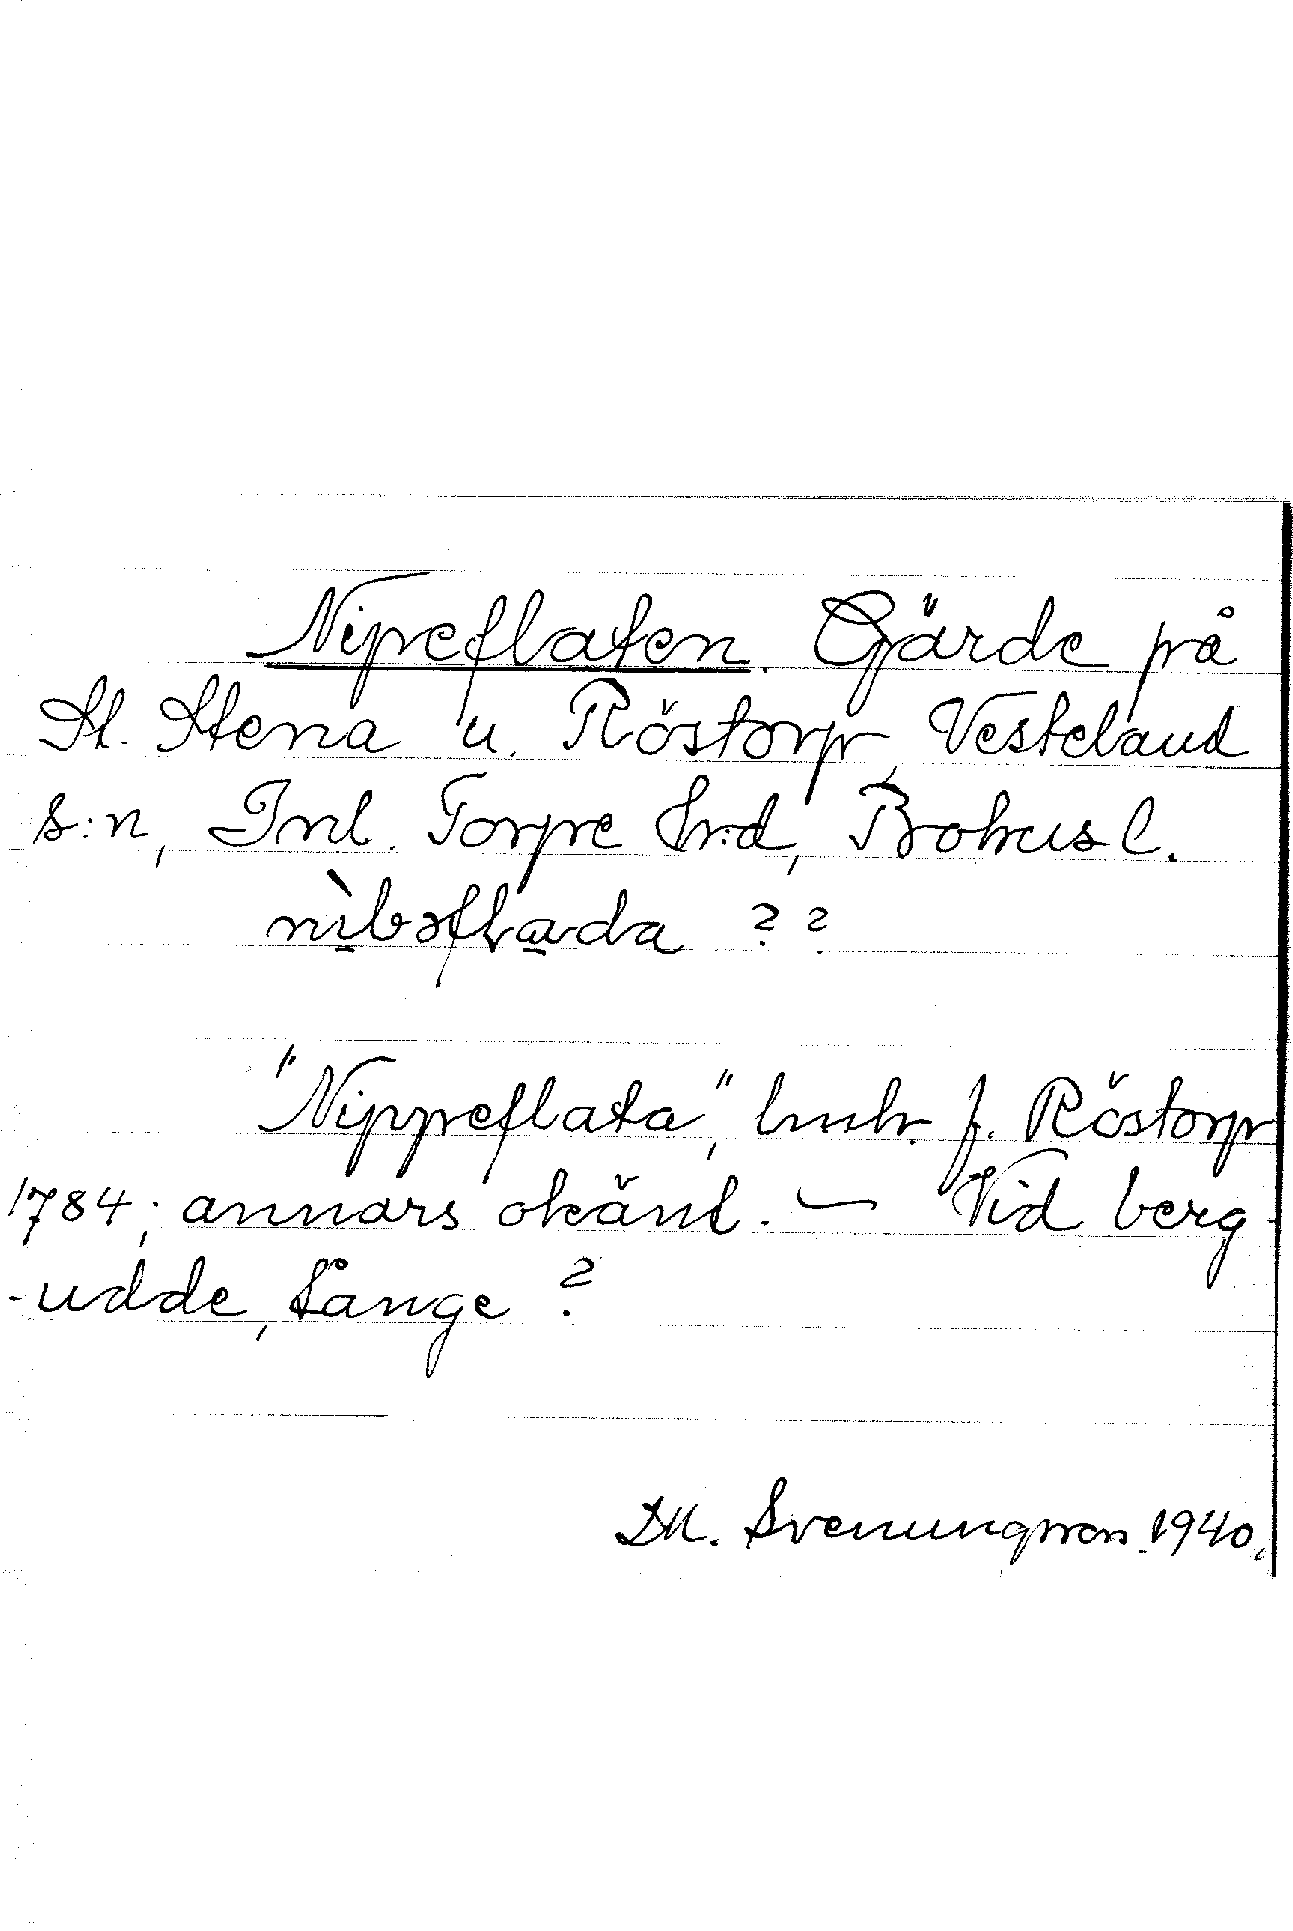 Nipeflaten. Gärde på
St. Stena u. Röstorp, Vesteland
s:n, Inl. Torpe hrd, Bohusl.
nìbəflada ??
"Nippeflata", lmh. f. Röstorp
1784; annars okänt. — Vid berg-
-udde, långe ?
D.U. Svenungsson. 1940.